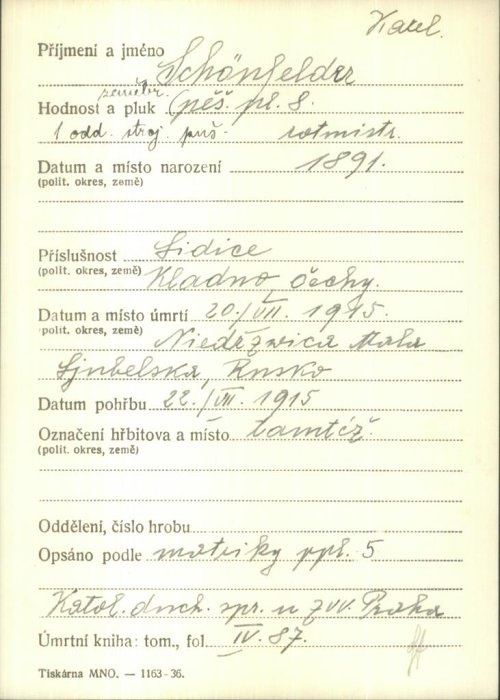 Karel.
Příjmení a jméno Schönfelder
zeměbr.
Hodnost a pluk pěš. pl. 8.
1 odd. stroj. puš. rotmistr.
Datum a místo narození 1891.
(polit. okres, země)
Příslušnost Lidice
(polit. okres, země) Kladno, Čechy.
Datum a místo úmrtí 20./VII. 1915.
(polit. okres, země) Niedržwica Mala
Ljubelska, Rusko
Datum pohřbu 22./VII. 1915
Označení hřbitova a místo tamtéž.
(polit. okres, země)
Oddělení, číslo hrobu
Opsáno podle matriky ppl. 5
Katol. duch. spr. u ZVV. Praha
Úmrtní kniha: tom., fol. IV. 87.
Tiskárna MNO. — 1163-36.